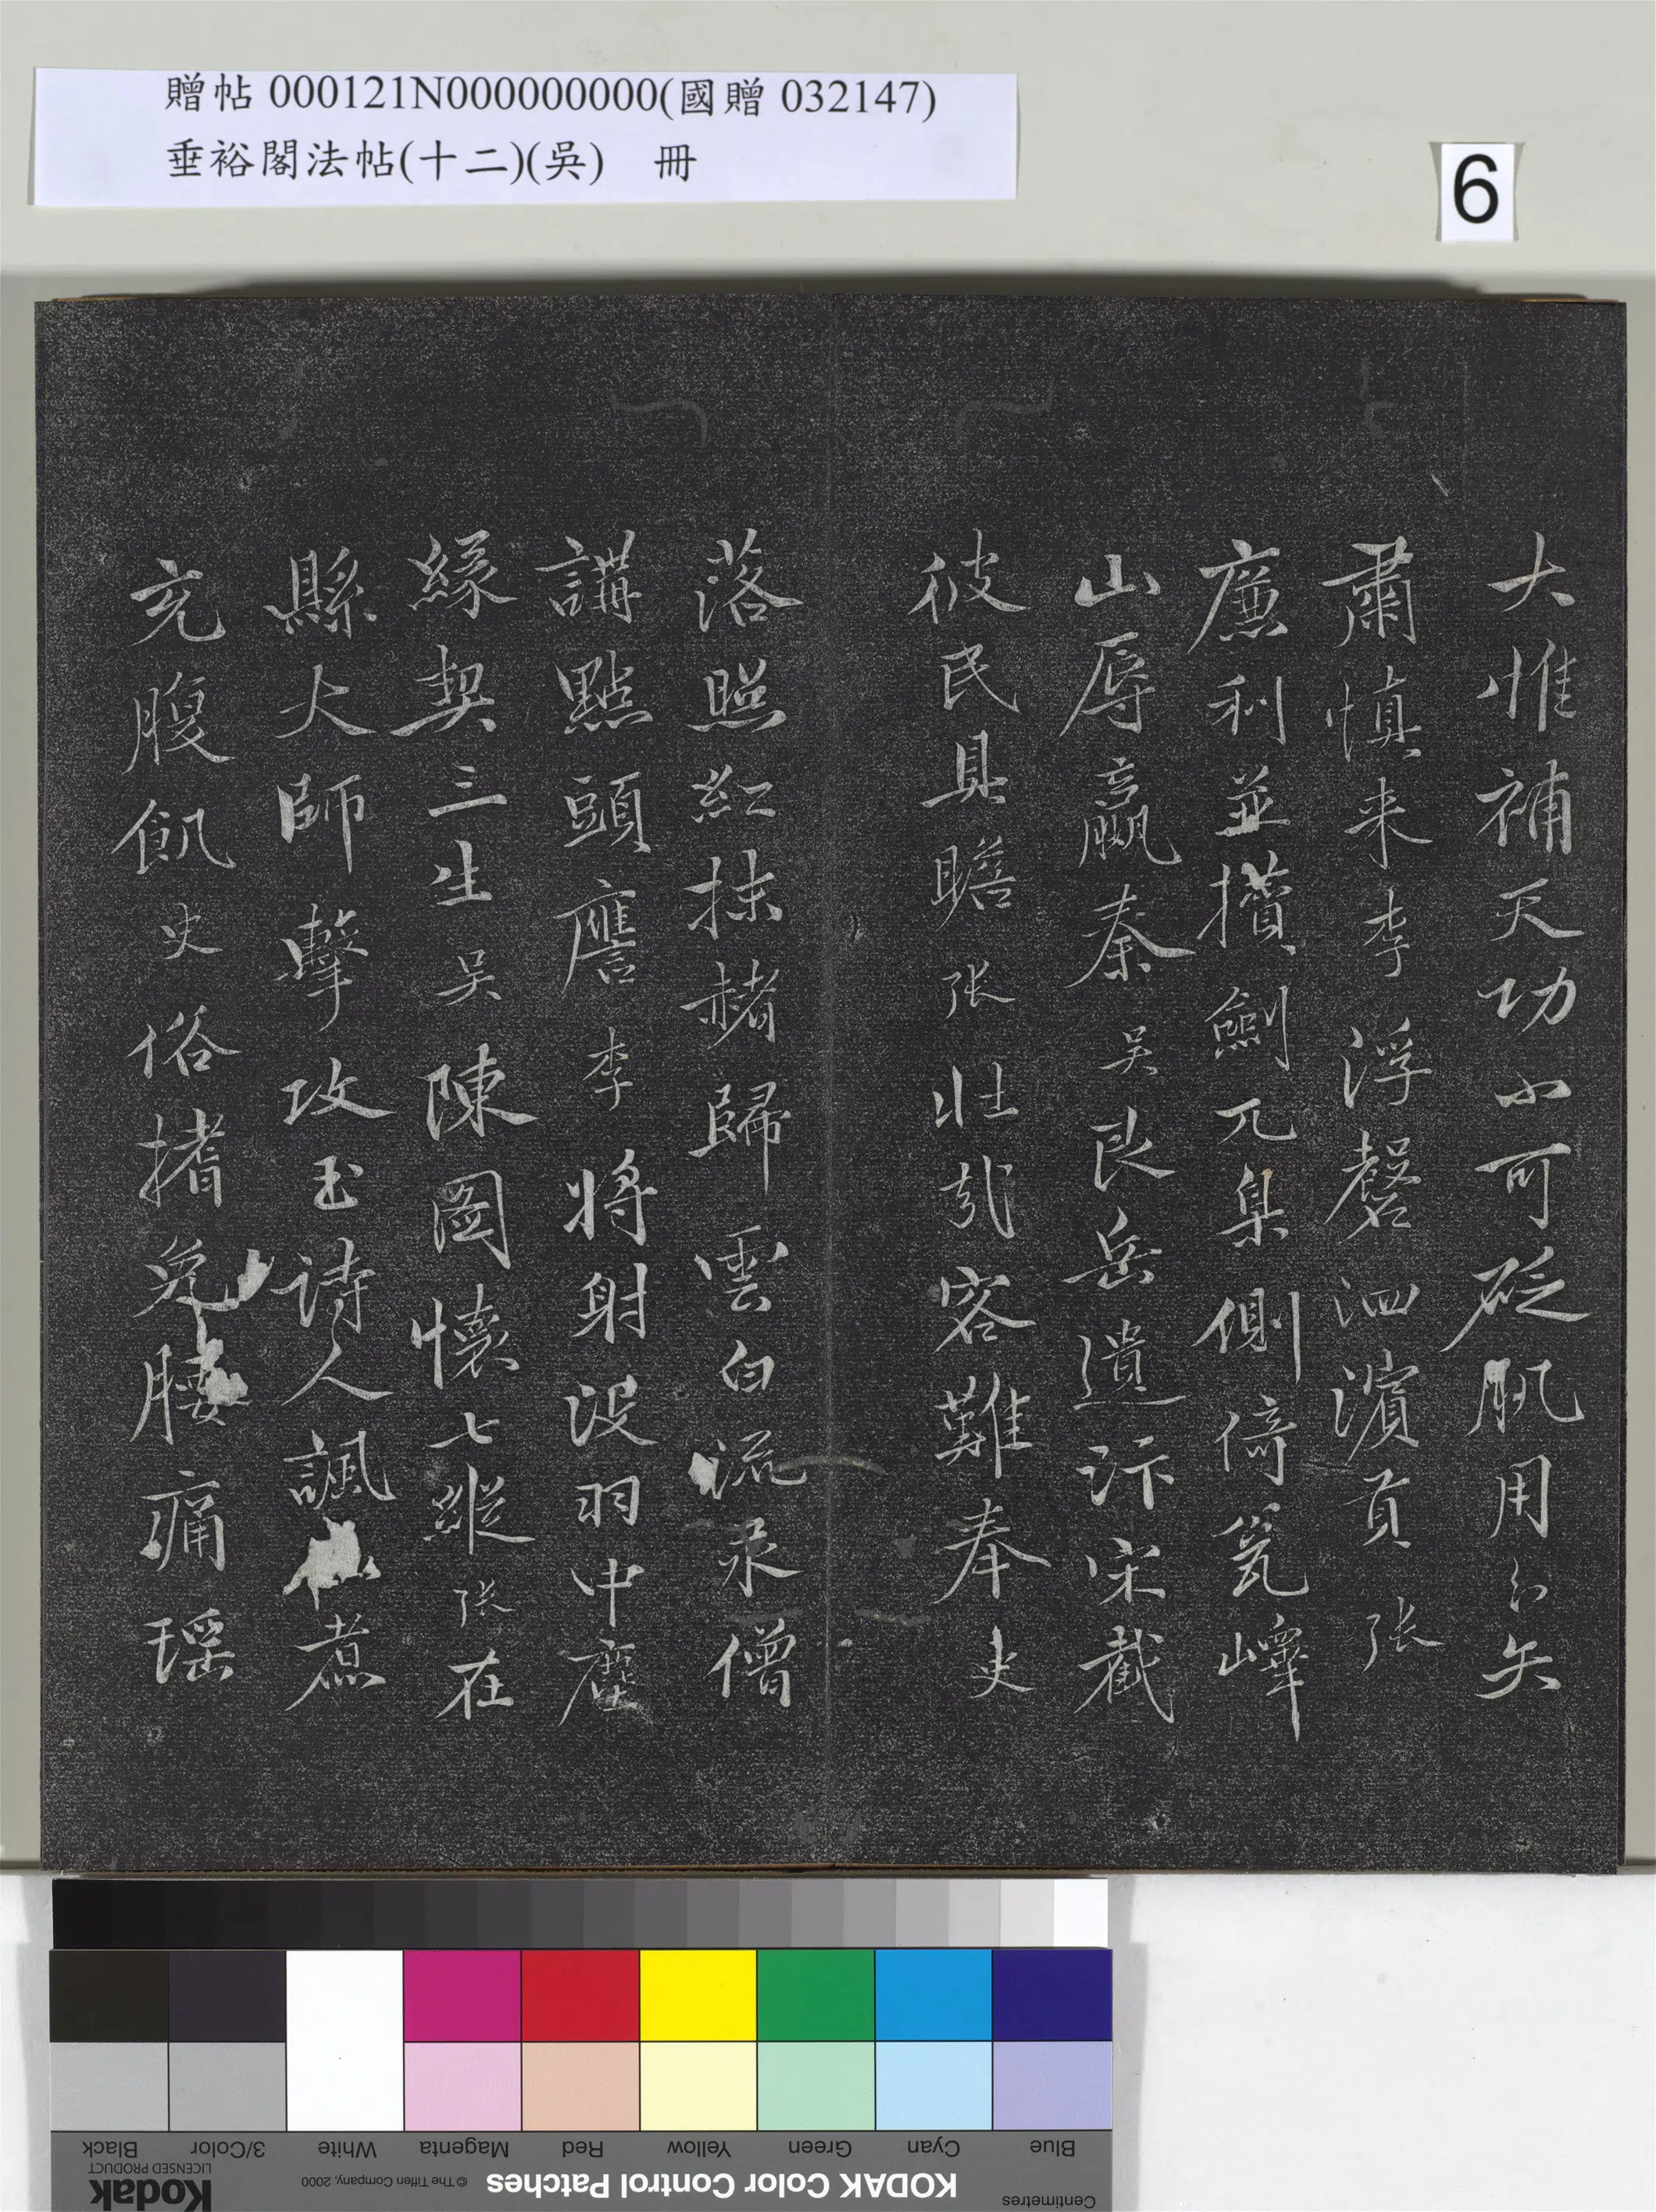 贈帖 000121N000000000(國贈 032147)
垂裕閣法帖(十二)(吳) 冊
6
大惟補天功小可砭肌用公矢
肅慎来李浮磬泗濱貢張
廉利並攢劍兀臬側倚瓮嶧
山辱嬴秦吴艮岳遺汴宋截
彼民具瞻張壮哉容難奉史
落照紅抹赭歸雲白流汞僧
講點頭譍李将射没羽中塵
緣契三生吴陳圖懷七縱張在
縣大師擊攻玉诗人諷煮
充腹飢史俗揩免腰痛瑶
Black
3/Color
White
Magenta
Red
Yellow
Green
Cyan
Blue
Kodak
LICENSED PRODUCT
© The Tiffen Company, 2000
KODAK Color Control Patches
Centimetres